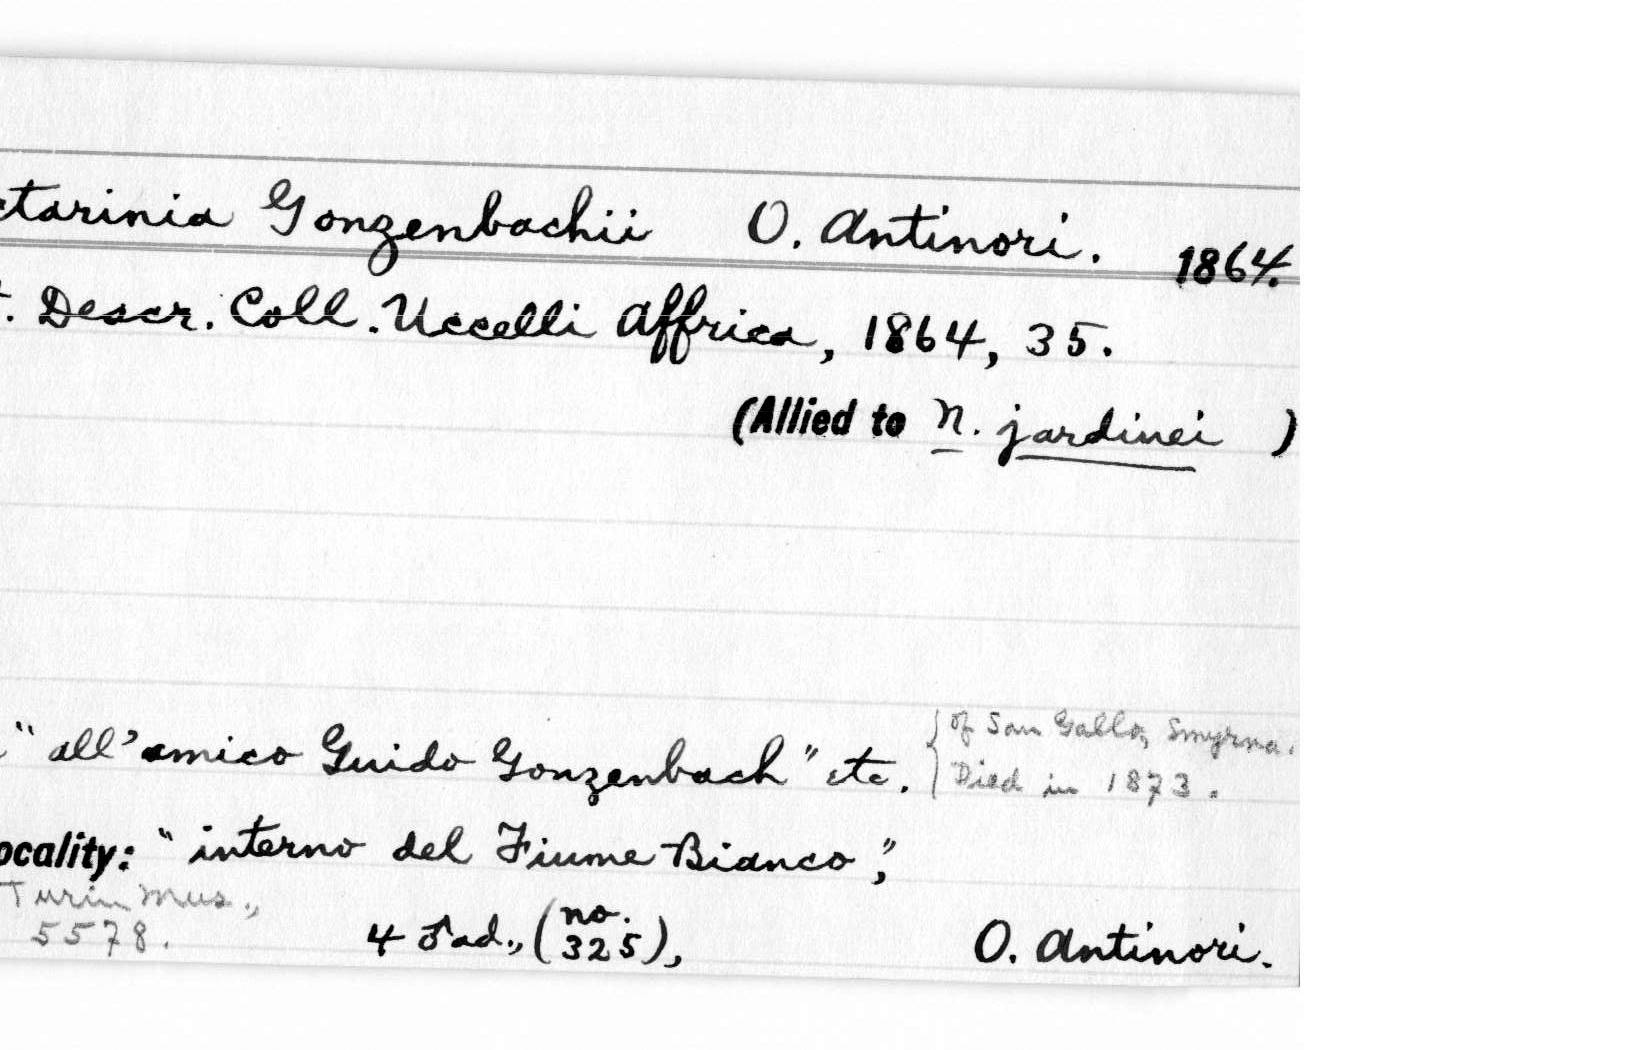 ctarinia Gonzenbachii O. Antinori. 1864.
t. Descr. Coll. Uccelli Affrica, 1864, 35.
(Allied to N. jardinei )
"all'amico Guido Gonzenbach" etc. { of San Gallo, Smyrna.
Died in 1873.
ocality: "interno del Fiume Bianco",
Turin Mus.,
5578.
4 ♂ ad., (no. 325), O. Antinori.